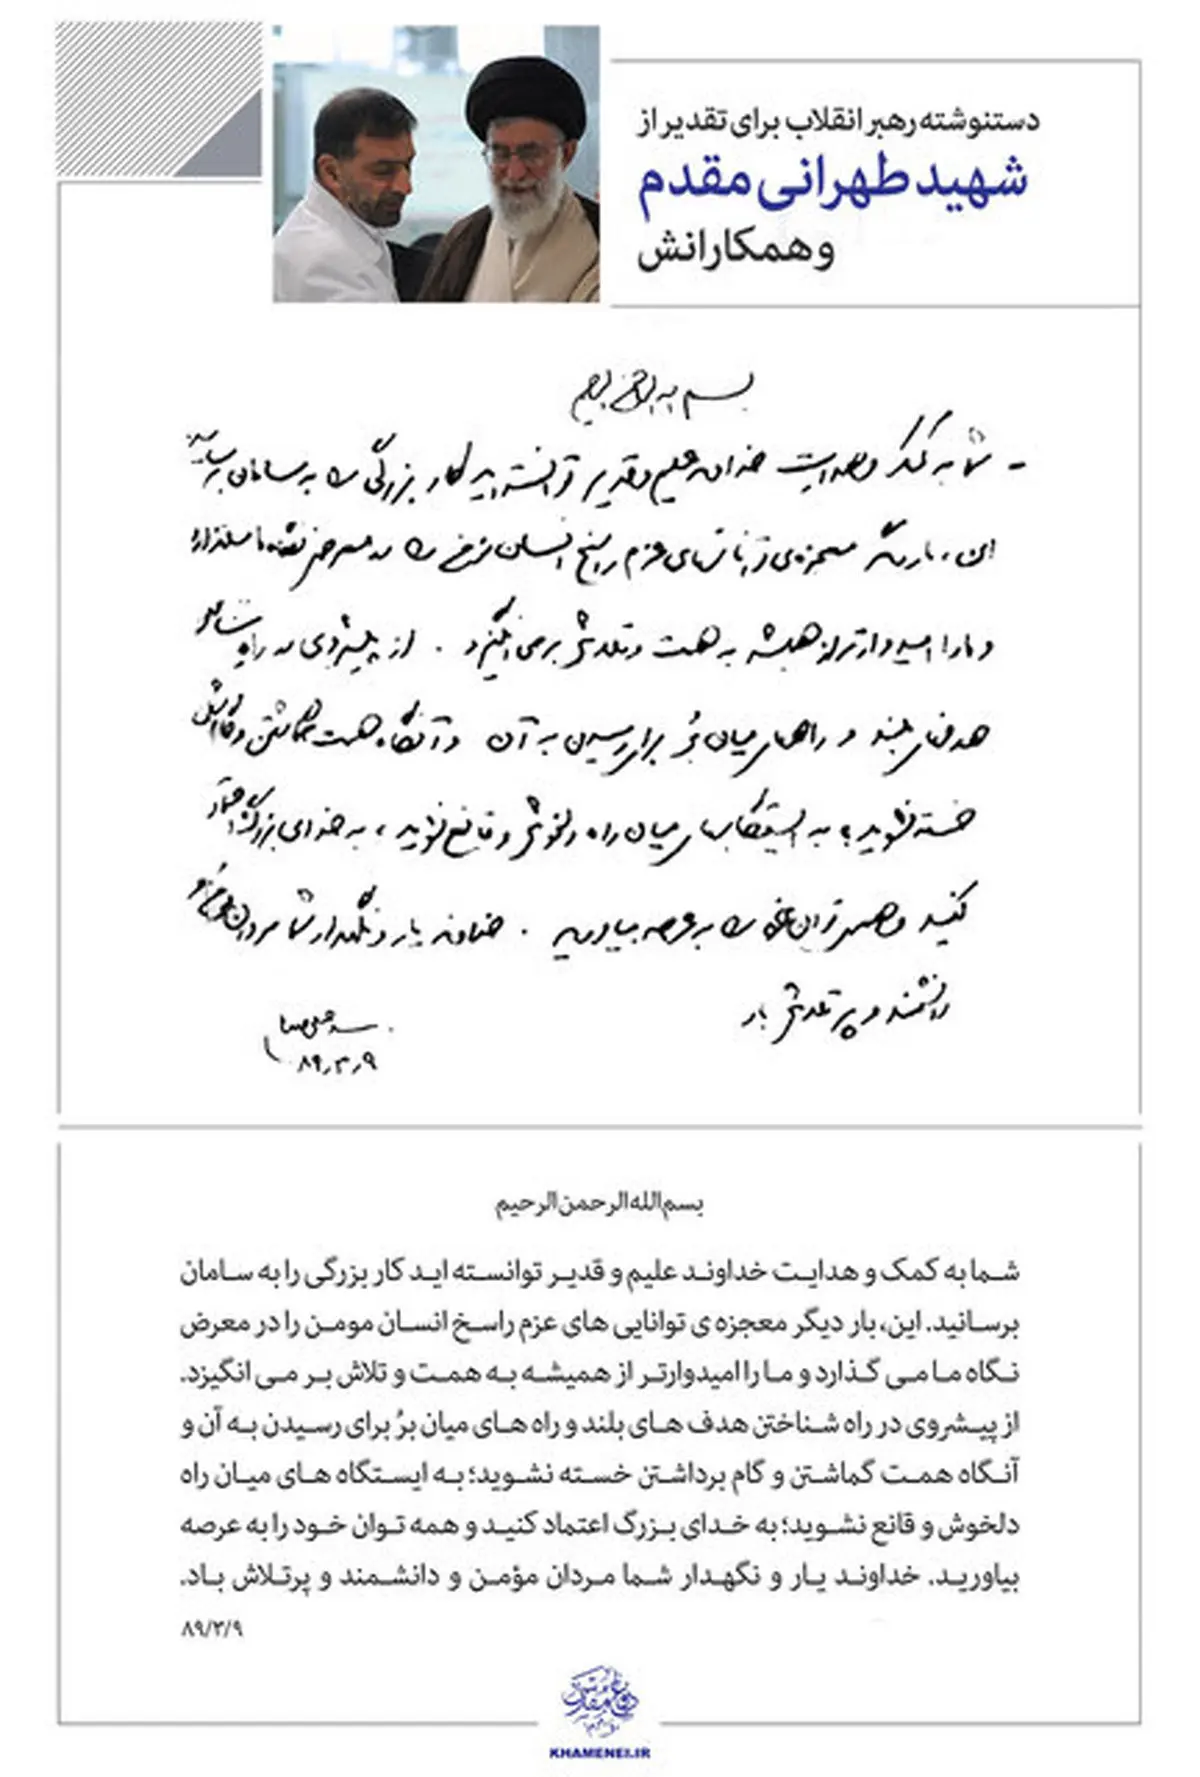 دستنوشته رهبر انقلاب برای تقدیر از
شهید طهرانی مقدم
و همکارانش
بسم الله الرحمن الرحیم
- شما به کمک و هدایت خداوند علیم و قدیر توانسته‌اید کار بزرگی را به سامان برسانید
این، بار دیگر معجزه‌ی توانائیهای عزم راسخ انسان مؤمن را در معرض نگاه ما میگذارد
و ما را امیدوارتر از همیشه به همت و تلاش برمی‌انگیزد. از پیشروی در راه شناختن
هدفهای بلند و راههای میان‌بُر برای رسیدن به آن و آنگاه همت گماشتن و گام برداشتن
خسته نشوید؛ به ایستگاههای میان راه دلخوش و قانع نشوید، به خدای بزرگ اعتماد
کنید و همه‌ی توان خود را به عرصه بیاورید. خداوند یار و نگهدار شما مردان مؤمن و
دانشمند و پرتلاش باد
سید علی خامنه‌ای
۸۹٫۳٫۹
بسم الله الرحمن الرحیم
شما به کمک و هدایت خداوند علیم و قدیر توانسته اید کار بزرگی را به سامان
برسانید. این، بار دیگر معجزه ی توانایی های عزم راسخ انسان مومن را در معرض
نگاه ما می گذارد و ما را امیدوارتر از همیشه به همت و تلاش بر می انگیزد.
از پیشروی در راه شناختن هدف های بلند و راه های میان برُ برای رسیدن به آن و
آنگاه همت گماشتن و گام برداشتن خسته نشوید؛ به ایستگاه های میان راه
دلخوش و قانع نشوید؛ به خدای بزرگ اعتماد کنید و همه توان خود را به عرصه
بیاورید. خداوند یار و نگهدار شما مردان مؤمن و دانشمند و پرتلاش باد.
۸۹/۳/۹
KHAMENEI.IR